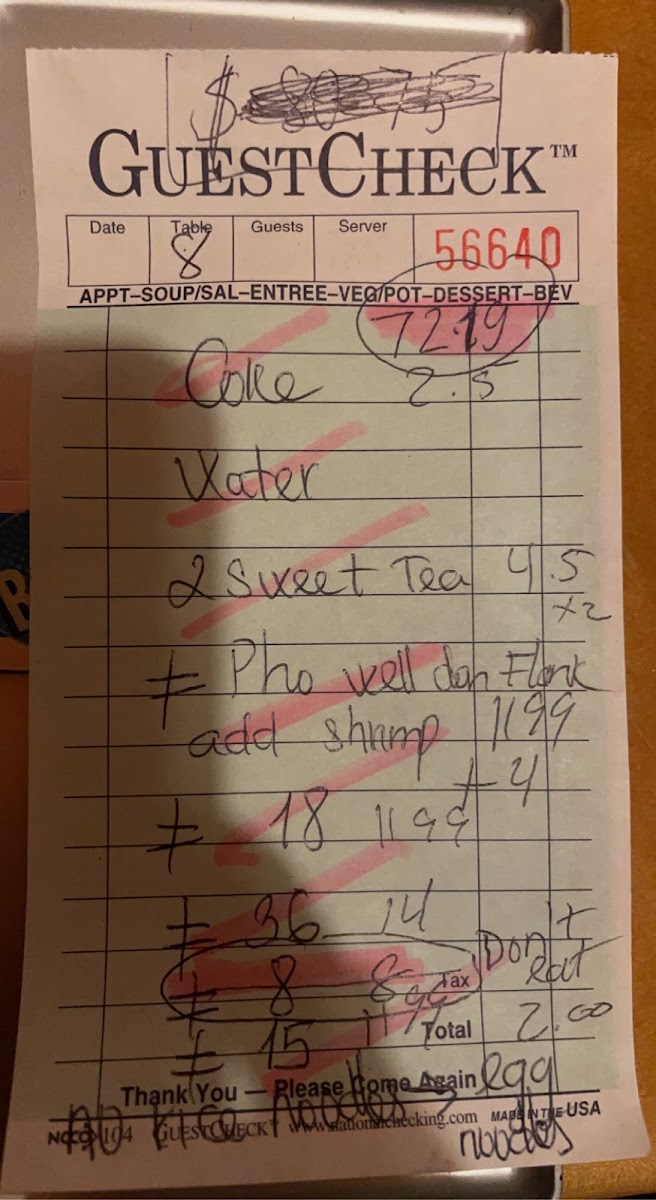 $ 80.75
GUESTCHECK™
Date Table Guests Server
8 56640
APPT–SOUP/SAL–ENTREE–VEG/POT–DESSERT–BEV
72.19
Coke 2.5
Water
2 Sweet Tea 4.5
x2
≠ Pho well don Flank
add shrimp 1199
+ 4
≠ 18 1199
≠ 36 14
≠ 8 8 99 Tax Don't eat
≠ 15 11 99 Total 2.00
Thank You — Please Come Again egg
No Rice Noodles → noodles
NCCO 104 GUESTCHECK™ www.nationalchecking.com MADE IN THE USA